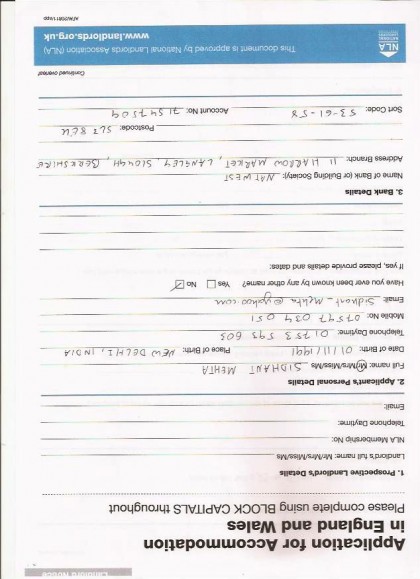 Landlord Notice
Application for Accommodation
in England and Wales
Please complete using BLOCK CAPITALS throughout
1. Prospective Landlord's Details
Landlord's full name: Mr/Mrs/Miss/Ms
NLA Membership No:
Telephone Daytime:
Email:
2. Applicant's Personal Details
Full name: Mr/Mrs/Miss/Ms SIDHANT MEHTA
Date of Birth: 01/11/1991 Place of Birth: NEW DELHI, INDIA
Telephone Daytime: 01753 593 603
Mobile No: 07597 034 051
Email: Sidhant-Mehta@yahoo.com
Have you ever been known by any other name? Yes No
If yes, please provide details and dates:
3. Bank Details
Name of Bank (or Building Society): NATWEST
Address Branch: 11 HARROW MARKET, LANGLEY, SLOUGH, BERKSHIRE
Postcode: SL3 8EU
Sort Code: 53-61-58 Account No: 71547509
Continued overleaf
This document is approved by National Landlords Association (NLA)
www.landlords.org.uk
NLA